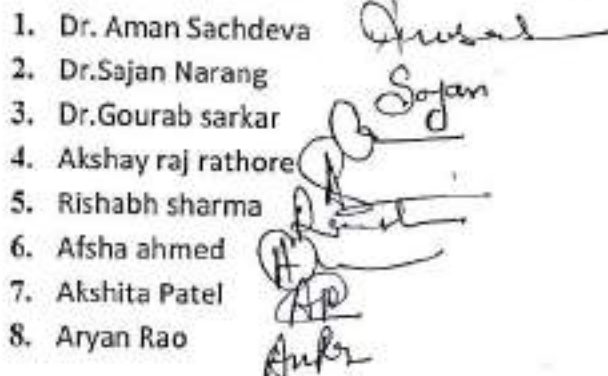 1. Dr. Aman Sachdeva
2. Dr.Sajan Narang Sajan
3. Dr.Gourab sarkar
4. Akshay raj rathore
5. Rishabh sharma
6. Afsha ahmed
7. Akshita Patel AP
8. Aryan Rao